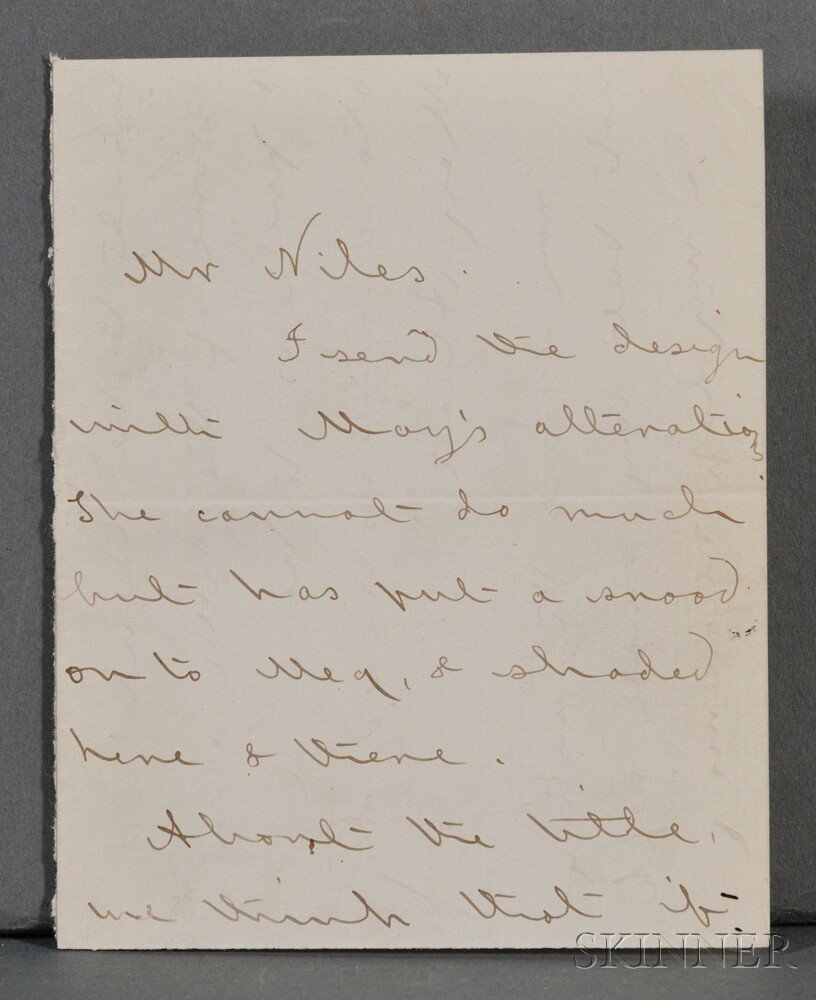 Mr Niles.
I send the design
with May's alterations
She cannot do much
but has put a snood
on to Meg, & shaded
here & there.
About the title,
we think that if
SKINNER